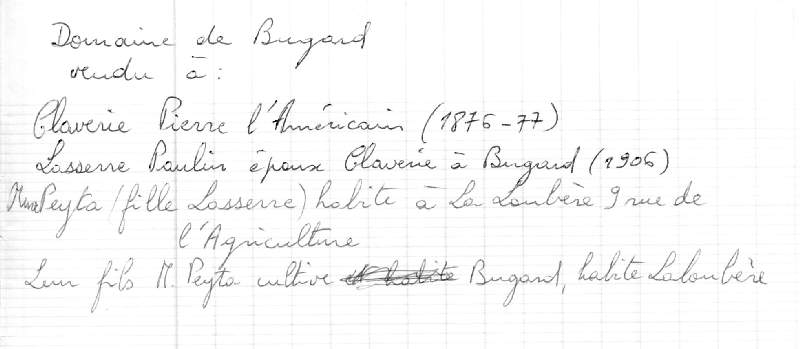 Domaine de Bugard
vendu à :
Claverie Pierre l'Américain (1876-77)
Lasserre Paulin époux Claverie à Bugard (1906)
Mme Peyta (fille Lasserre) habite à La Loubère 9 rue de
l'Agriculture
Leur fils M. Peyta cultive et habite Bugard, habite Laloubère